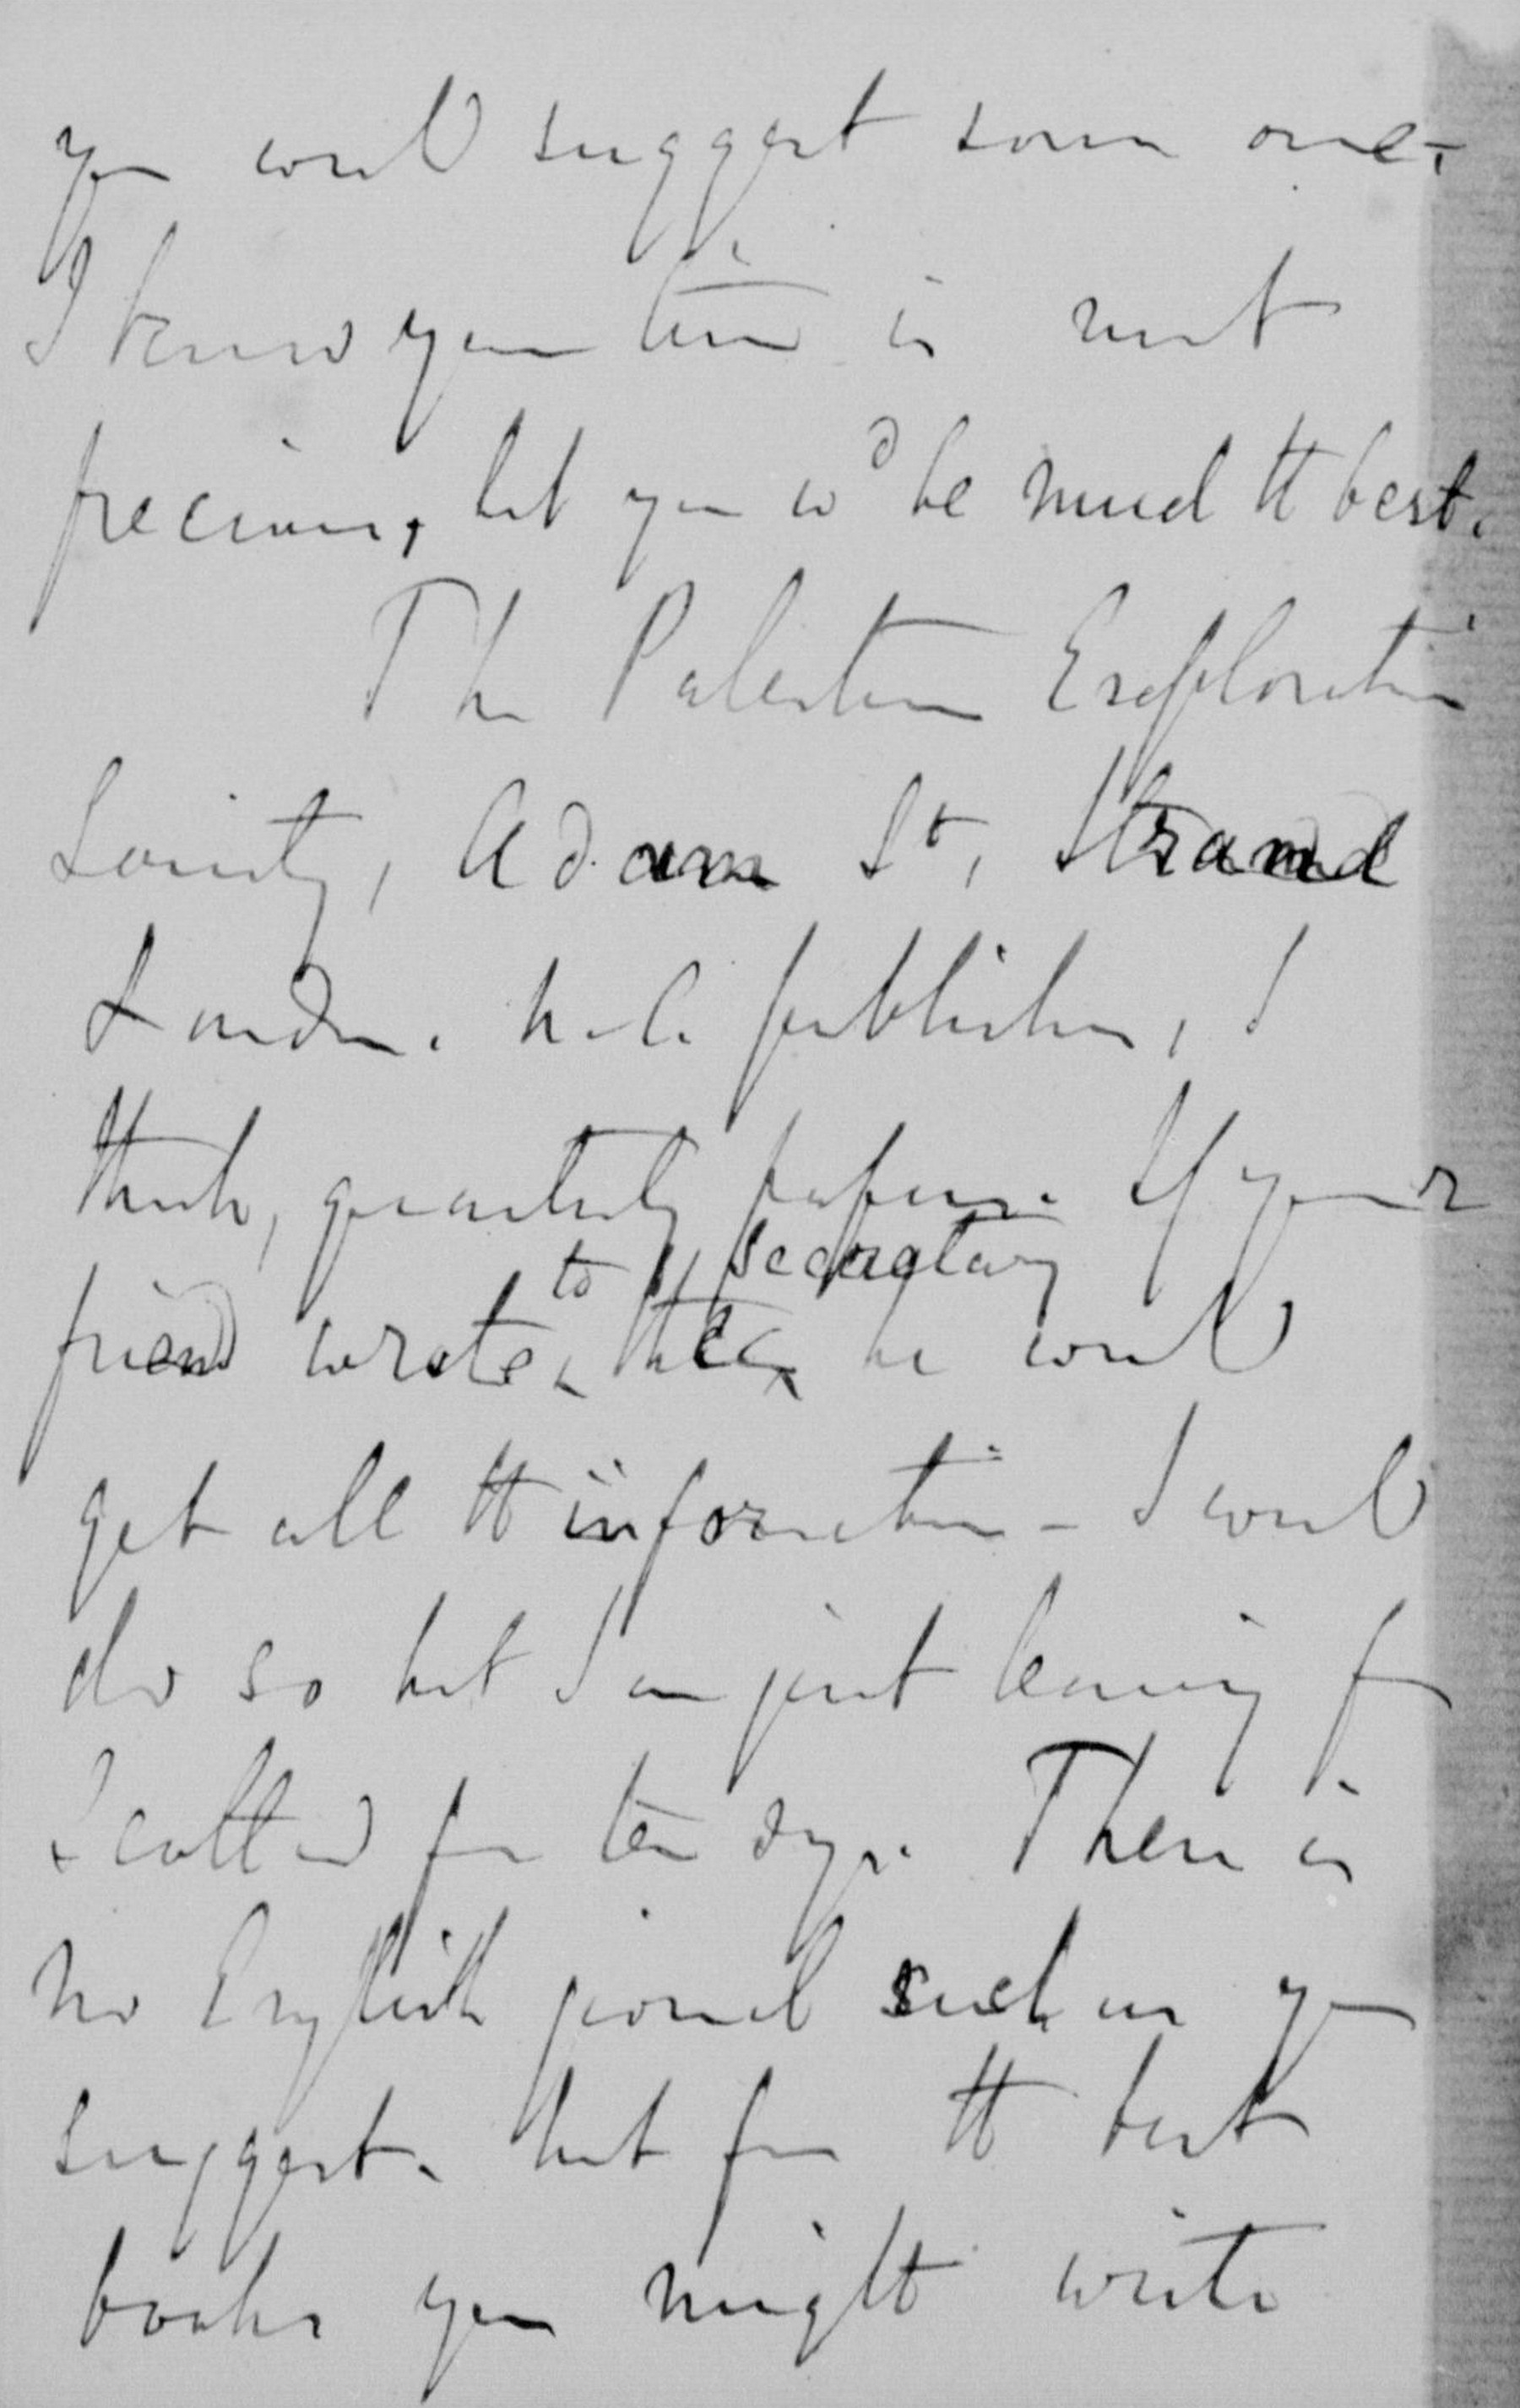 you could suggest some one.
I know your time is most
precious, but you wd be much tt best.
The Palestine Exploration
Society, Adam St, Strand
London. W.C. publishes, I
think, quarterly papers. If your
friend wrote to tte secretary he could
get all tt information - I would
do so but I am just leaving for
Scotland for ten days. There is
no English journal such as you
suggest. but for tt best
books you might write